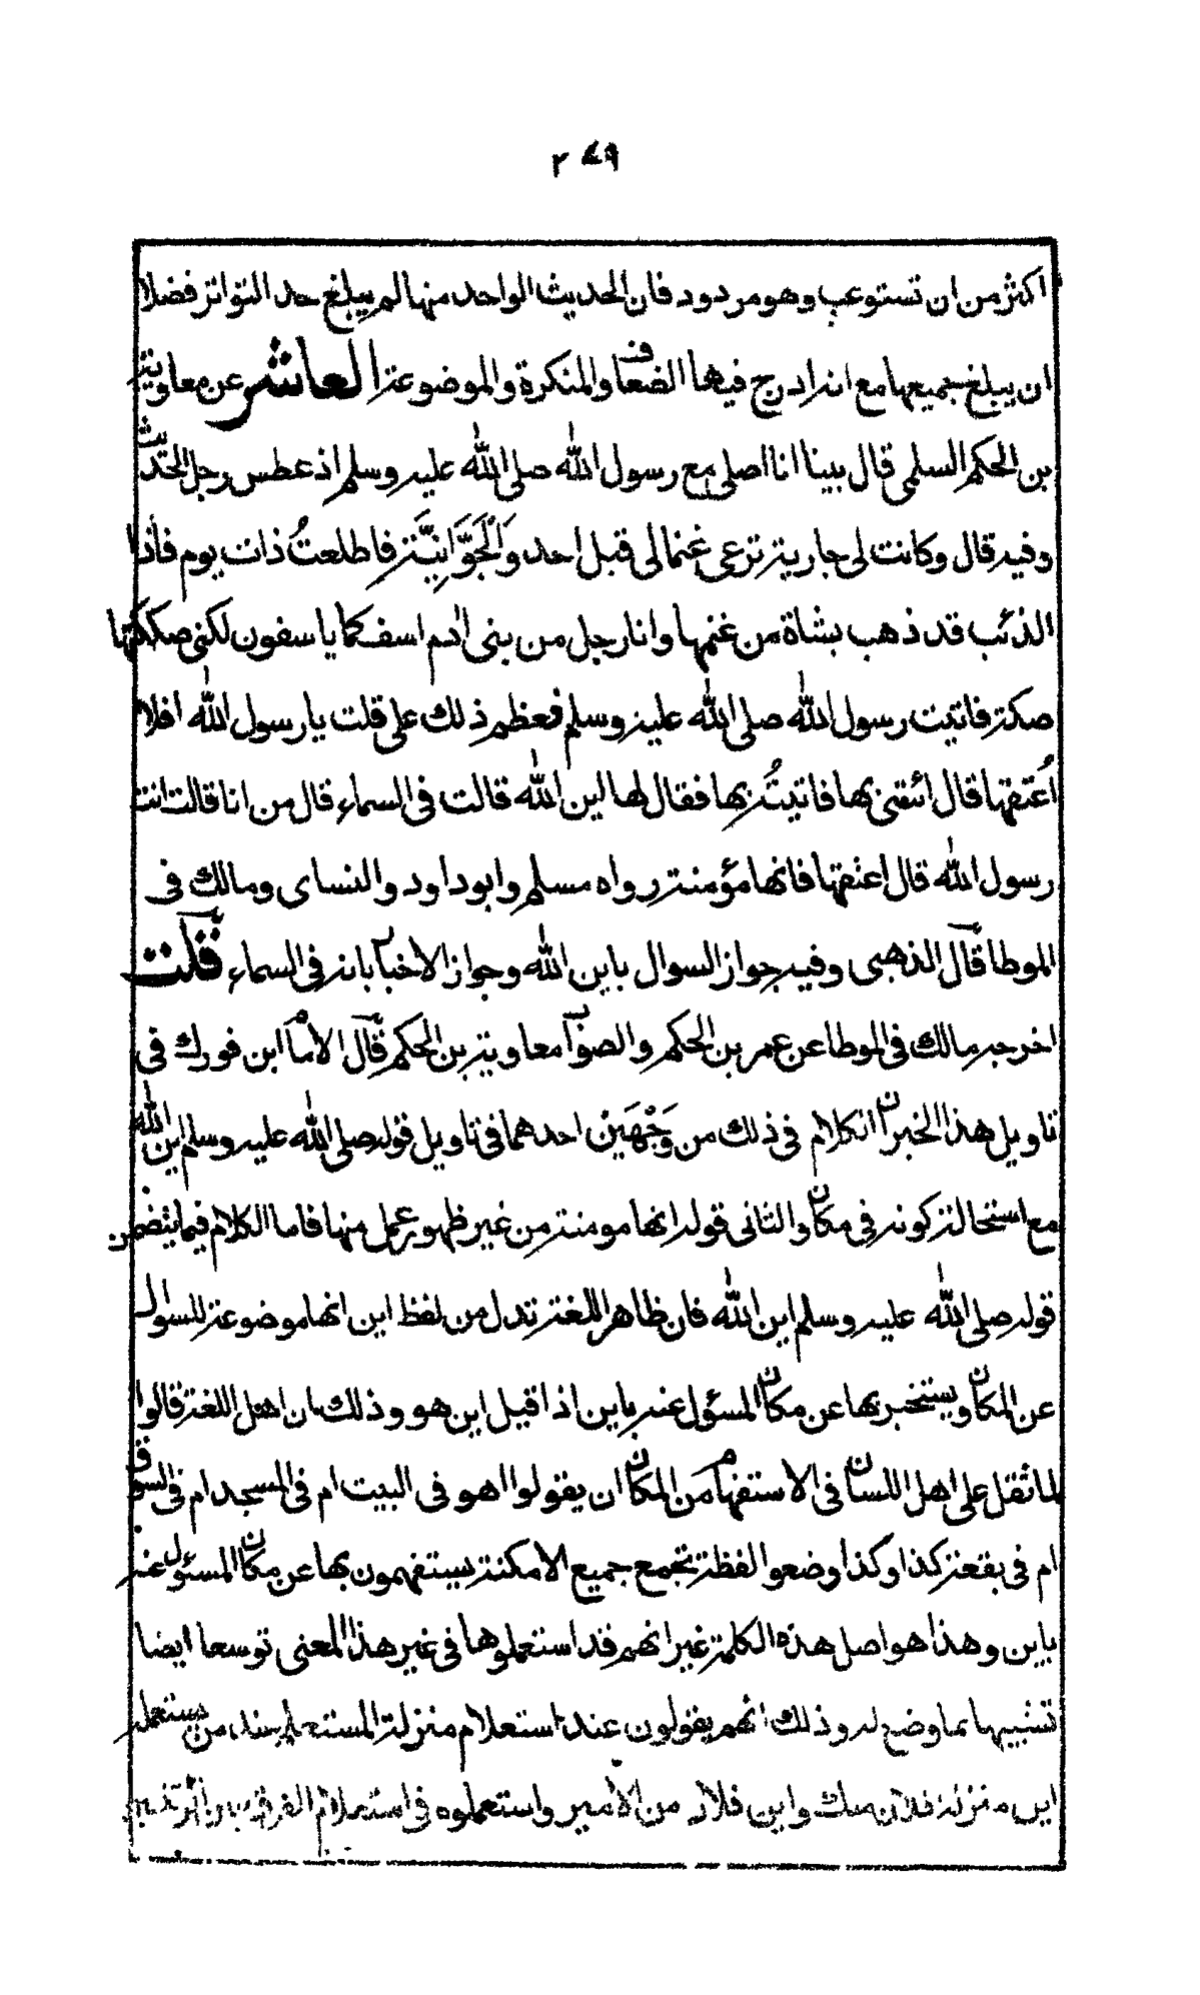 ٢٤٩
اكثر من ان تستوعب وهو مردود فان الحديث الواحد منها لم يبلغ حد التواتر فضلا
ان يبلغ جميعها مع انه ادرج فيها الضعاف والمنكرة والموضوعة العاشر عن معاوية
بن الحكم السلمى قال بينا انا اصلى مع رسول الله صلى الله عليه وسلم اذ عطس رجل الحديث
وفيه قال وكانت لى جارية ترعى غنما لى قبل احد وَالْجَوَّانِيَّة فاطلعتُ ذات يوم فاذا
الذئب قد ذهب بشاة من غنمها وانا رجل من بنى ادم اسف كما ياسفون لكنى صككتها
صكة فاتيت رسول الله صلى الله عليه وسلم فعظم ذلك على قلت يا رسول الله افلا
اُعتقها قال ائتنى بها فاتيتُه بها فقال لها اين الله قالت فى السماء قال من انا قالت انت
رسول الله قال اعتقها فانها مؤمنة رواه مسلم وابوداود والنساى ومالك فى
الموطا قال الذهبى وفيه جواز السوال باين الله وجواز الاخبار بانه فى السماء قلت
اخرجه مالك فى الموطا عن عمر بن الحكم والصواب معاوية بن الحكم قال الامام ابن فورك فى
تاويل هذا الخبر ان الكلام فى ذلك من وَجْهَين احدهما فى تاويل قوله صلى الله عليه وسلم اين الله
مع استحالة كونه فى مكان والثانى قوله انها مومنة من غير ظهور عمل منها فاما الكلام فيما يتضمن
قوله صلى الله عليه وسلم اين الله فان ظاهر اللغة تدل من لفظ اين انها موضوعة للسوال
عن المكان ويستخبر بها عن مكان المسؤل عنه باين اذا قيل اين هو وذلك ان اهل اللغة قالوا
لما ثقل على اهل اللسان فى الاستفهام من المكان ان يقولوا اهو فى البيت ام فى المسجد ام فى السوق
ام فى بقعة كذا وكذا وضعوا لفظة تجمع جميع الامكنة يستفهمون بها عن مكان المسئول عنه
باين وهذا هو اصل هذه الكلمة غير انهم قد استعملوها فى غير هذا المعنى توسعا ايضا
تشبيها بما وضع له وذلك انهم يقولون عند استعلام منزلة المستعلم عند من يستعمله
اين منزلة فلان منك واين فلان من الامير واستعملوه فى استعلام الفرق بين